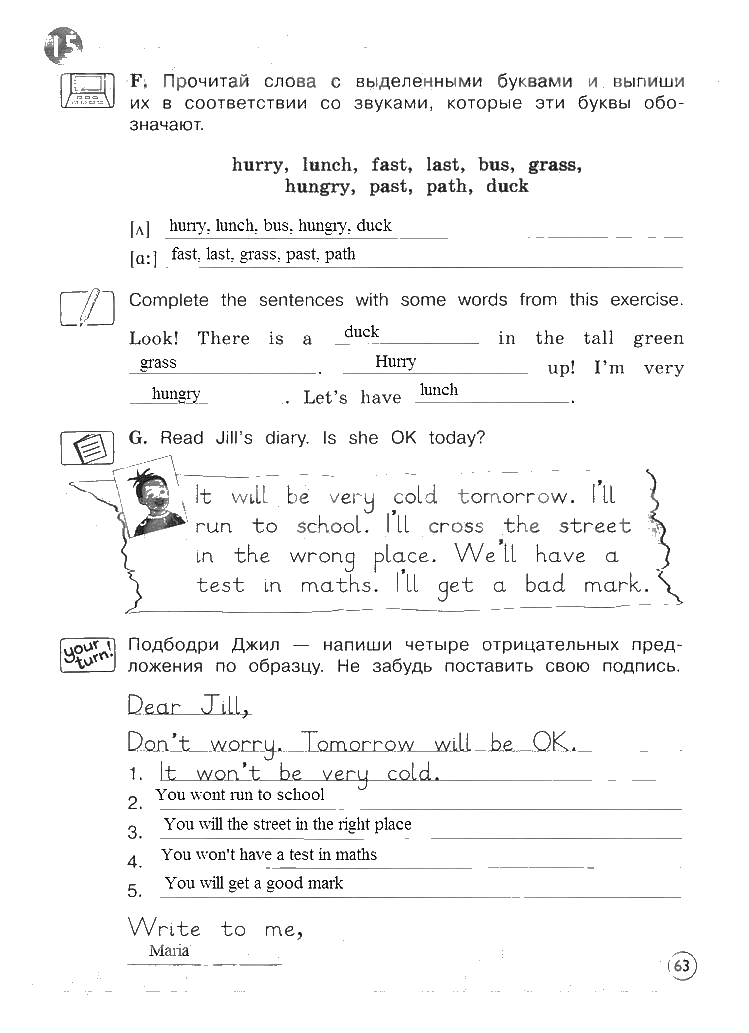 15
F. Прочитай слова с выделенными буквами и выпиши
их в соответствии со звуками, которые эти буквы обо-
значают.
hurry, lunch, fast, last, bus, grass,
hungry, past, path, duck
[ʌ] hurry, lunch, bus, hungry, duck
[ɑ:] fast, last, grass, past, path
Complete the sentences with some words from this exercise.
Look! There is a duck in the tall green
grass. Hurry up! I'm very
hungry. Let's have lunch.
G. Read Jill's diary. Is she OK today?
It will be very cold tomorrow. I'll
run to school. I'll cross the street
in the wrong place. We'll have a
test in maths. I'll get a bad mark.
your turn!
Подбодри Джил — напиши четыре отрицательных пред-
ложения по образцу. Не забудь поставить свою подпись.
Dear Jill,
Don't worry. Tomorrow will be OK.
1. It won't be very cold.
2. You wont run to school
3. You will the street in the right place
4. You won't have a test in maths
5. You will get a good mark
Write to me,
Maria
63